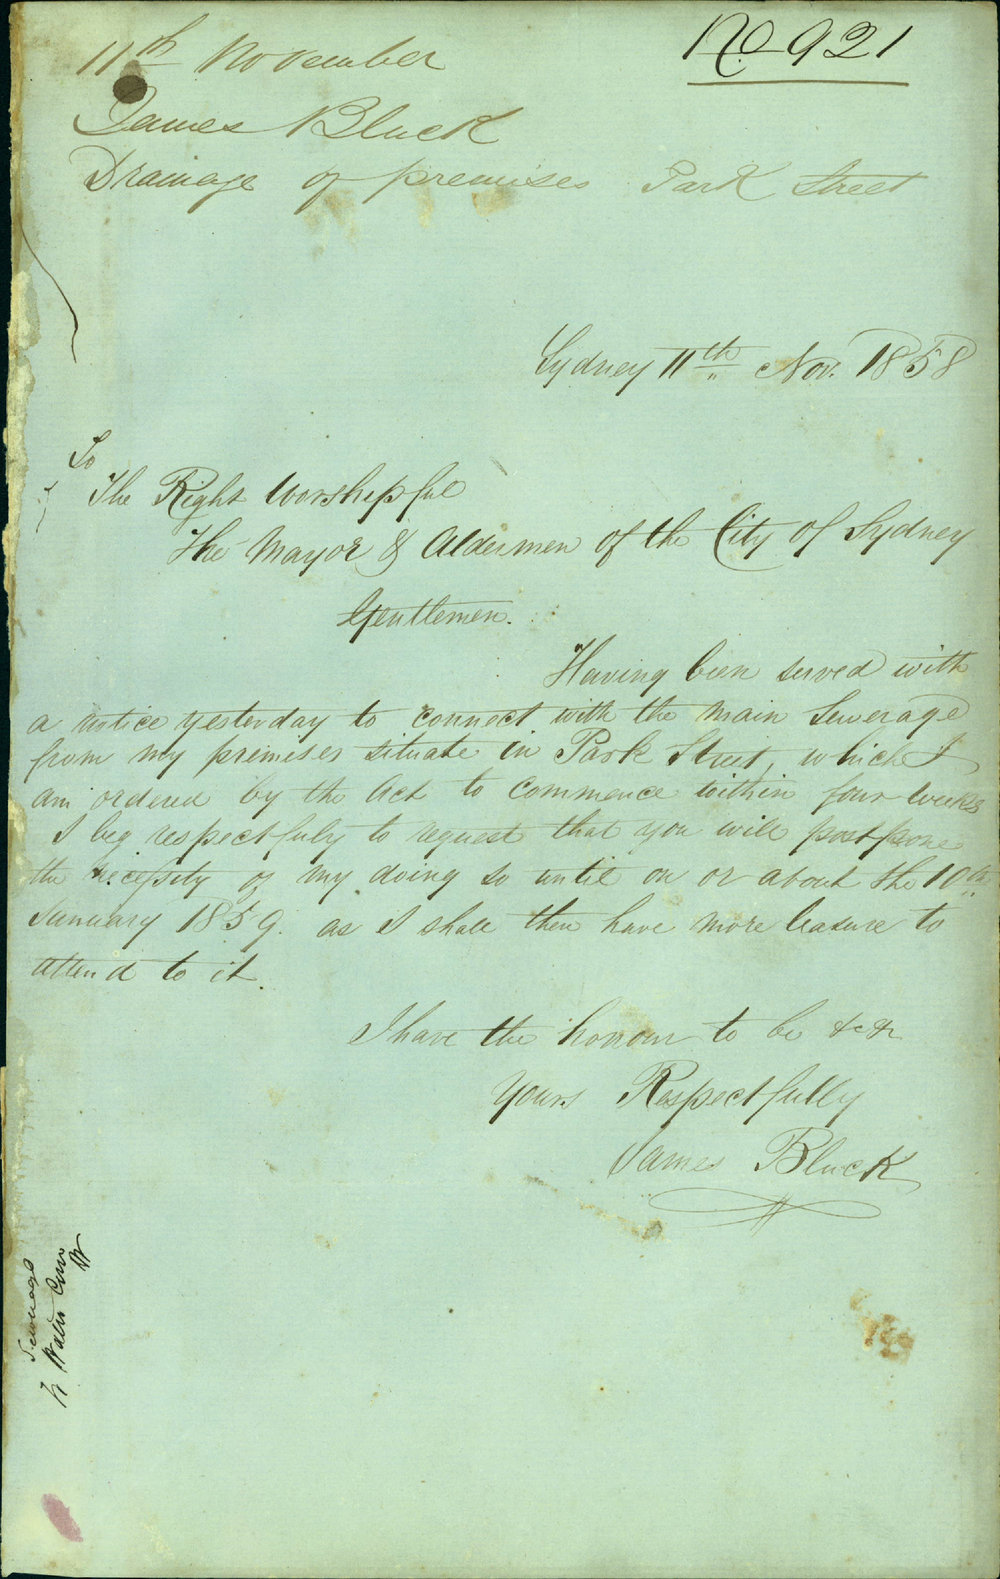 No 921
11th November
James Bluck
Drainage of premises Park Street
Sydney 11th Nov. 1858
To
The Right Worshipful
The Mayor & Aldermen of the City of Sydney
Gentlemen.
Having been served with
a notice yesterday to connect with the main Sewerage
from my premises situate in Park Street, which I
am ordered by the Act to commence within four weeks
I beg respectfully to request that you will postpone
the necessity of my doing so until on or about the 10th
January 1859. as I shall then have more leasure to
attend to it.
I have the honour to be &c &c
Yours Respectfully
James Bluck
Sewerage
& Water Com